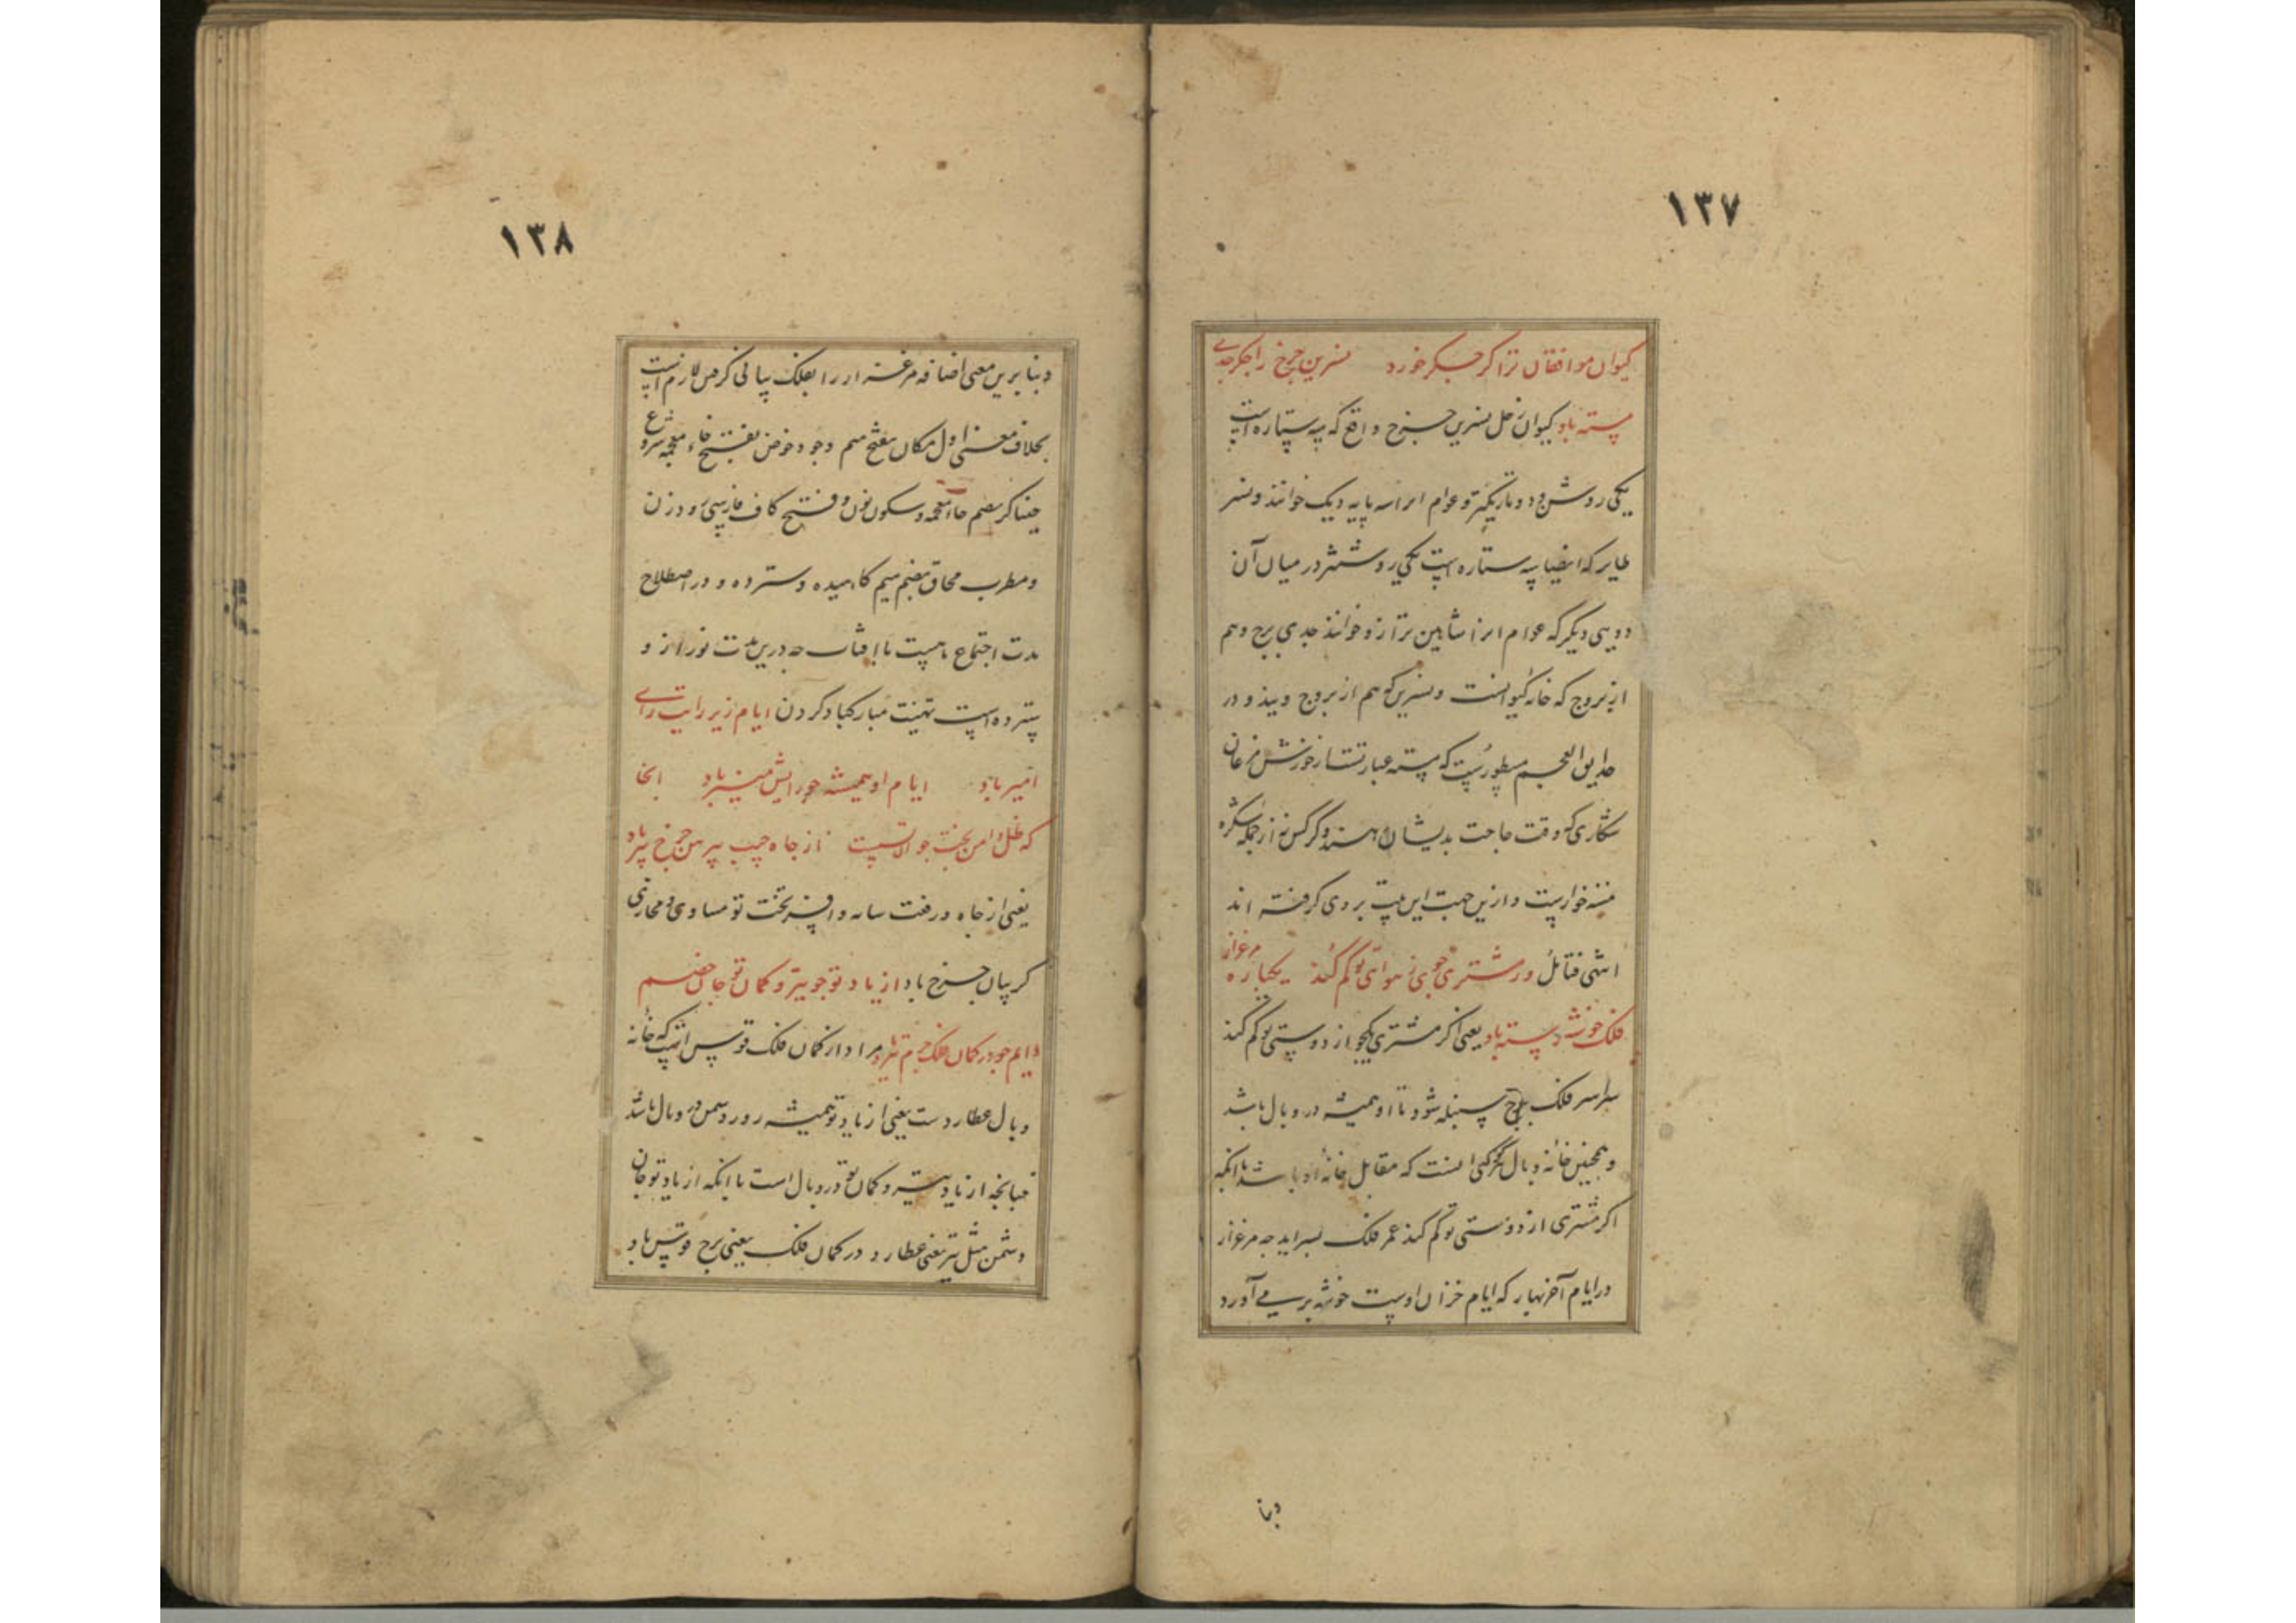 ١٣٧
کیوان موافقان ترا کر جکر خورد نسرین چرخ را جکر جدی
پسته باد کیوان زحل نسرین چرخ واقع که سه ستاره است
یکی روشن و دو تاریکتر و عوام انرا سه پایه دیک خوانند و نسر
طایر که ایضا سه ستاره است یکی روشنتر در میان آن
دویی دیکر که عوام انرا شاهین ترازو خوانند جدی برج دهم
از بروج که خانه کیوانست و نسرین که هم از بروج و در
حدایق العجم مسطورست که مسته عبارتست از خورش مرغان
شکاری که وقت حاجت بدیشان دهند و کرکس نه از جمله شکره
مسته خوارست و ازین جهت این بیت بر وی کرفته اند
انتهی فتامل ور مشتری جوی ز هوای تو کم کند یکباره مرغزار
فلک خوشه دسته باد یعنی اکر مشتری یکجو از دوستی تو کم کند
سراسر فلک برج سنبله شود تا او همیشه در وبال باشد
و همچنین خانه وبال هر کوکبی انست که مقابل خانه او باشد با انکه
اکر مشتری از دوستی تو کم کند عمر فلک بسراید چه مرغزار
در ایام آخر بهار که ایام خزان اوست خوشه بر می آورد
وبنا
١٣٨
وبنا برین معنی اضافه مرغزار را بفلک بیانی کرفتن لازم است
بخلاف معنی اول مکان بفتح میم وجود خوض بفتح خاء معجمه شروع
خنیاکر بضم خاء معجمه و سکون نون و فتح کاف فارسی رود زن
و مطرب محاق بضم میم کاهیده و سترده و در اصطلاح
مدت اجتماع ماهست با افتاب چه درین مدت نور از و
سترده است تهنیت مبارکباد کردن ایام زیر رایت رای
امیر باد ایام او همیشه چو رایش منیر باد انجا
که ظل دامن بخت جوان تست از جاه جیب پیرهن چرخ پیر باد
یعنی از جاه و رفعت سایه دامن بخت تو مساوی و محاذی
کریبان چرخ باد از یاد تو چو تیر و کمان تو جان خصم
دایم چو در کمان فلک جرم تیر باد مراد از کمان فلک قوس است که خانه
وبال عطاردست یعنی از یاد تو همیشه روز دشمن در وبال باشد
چنانچه از یاد تیر و کمان تو در وبال است با انکه از یاد تو جان
دشمن مثل تیر یعنی عطارد در کمان فلک یعنی برج قوس باد